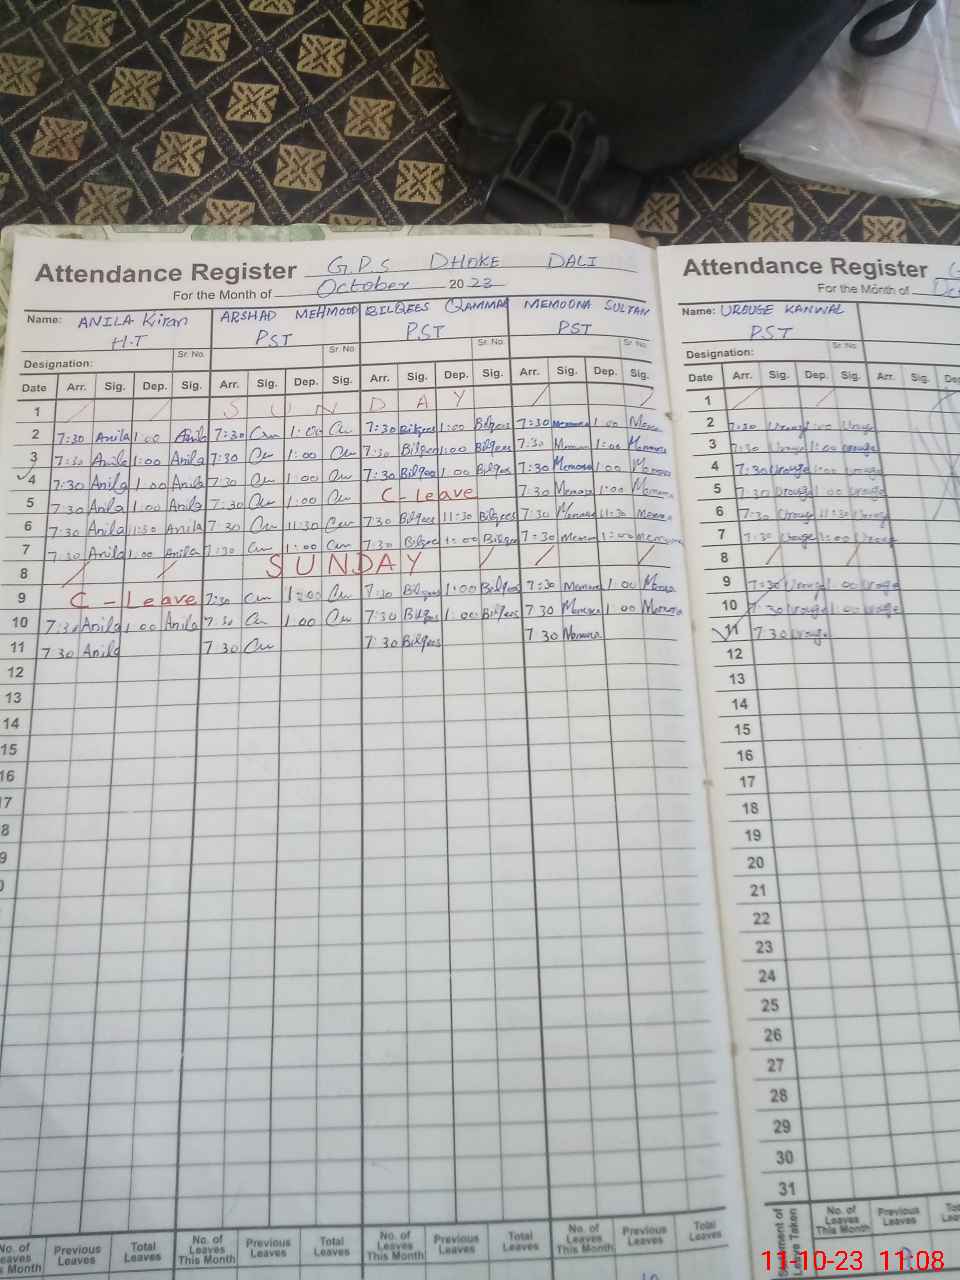 Attendance Register G.P.S DHOKE DALI
For the Month of October 2023
Name: ANILA Kiran ARSHAD MEHMOOD BILQEES QAMMAR MEMOONA SULTAN
H.T PST PST PST
Designation: Sr. No. Sr. No. Sr. No. Sr. No.
Date Arr. Sig. Dep. Sig. Arr. Sig. Dep. Sig. Arr. Sig. Dep. Sig. Arr. Sig. Dep. Sig.
1 SUNDAY
2 7:30 Anila 1:00 Anila 7:30 1:00 7:30 Bilqees 1:00 Bilqees 7:30 1:00
3 7:30 Anila 1:00 Anila 7:30 1:00 7:30 Bilqees 1:00 Bilqees 7:30 1:00
4 7:30 Anila 1:00 Anila 7:30 1:00 7:30 Bilqees 1:00 Bilqees 7:30 1:00
5 7:30 Anila 1:00 Anila 7:30 1:00 C-Leave 7:30 1:00
6 7:30 Anila 11:30 Anila 7:30 11:30 7:30 Bilqees 11:30 Bilqees 7:30 11:30
7 7:30 Anila 1:00 Anila 7:30 1:00 7:30 Bilqees 1:00 Bilqees 7:30 1:00
8 SUNDAY
9 C-Leave 7:30 1:00 7:30 Bilqees 1:00 Bilqees 7:30 1:00
10 7:30 Anila 1:00 Anila 7:30 1:00 7:30 Bilqees 1:00 Bilqees 7:30 1:00
11 7 30 Anila 7 30 7:30 Bilqees 7 30
12
13
14
15
16
No. of Leaves This Month Previous Leaves Total Leaves No. of Leaves This Month Previous Leaves Total Leaves No. of Leaves This Month Previous Leaves Total Leaves No. of Leaves This Month Previous Leaves Total Leaves
Attendance Register
For the Month of
Name: UROUGE KANWAL
PST
Designation: Sr. No.
Date Arr. Sig. Dep. Sig. Arr. Sig.
1
2 7:30 Urouge 1:00 Urouge
3 7:30 Urouge 1:00 Urouge
4 7:30 Urouge 1:00 Urouge
5 7:30 Urouge 1:00 Urouge
6 7:30 Urouge 11:30 Urouge
7 7:30 Urouge 1:00 Urouge
8
9 7:30 Urouge 1:00 Urouge
10 7:30 Urouge 1:00 Urouge
11 7:30 Urouge
12
13
14
15
16
17
18
19
20
21
22
23
24
25
26
27
28
29
30
31
No. of Leaves This Month Previous Leaves
11-10-23 11:08